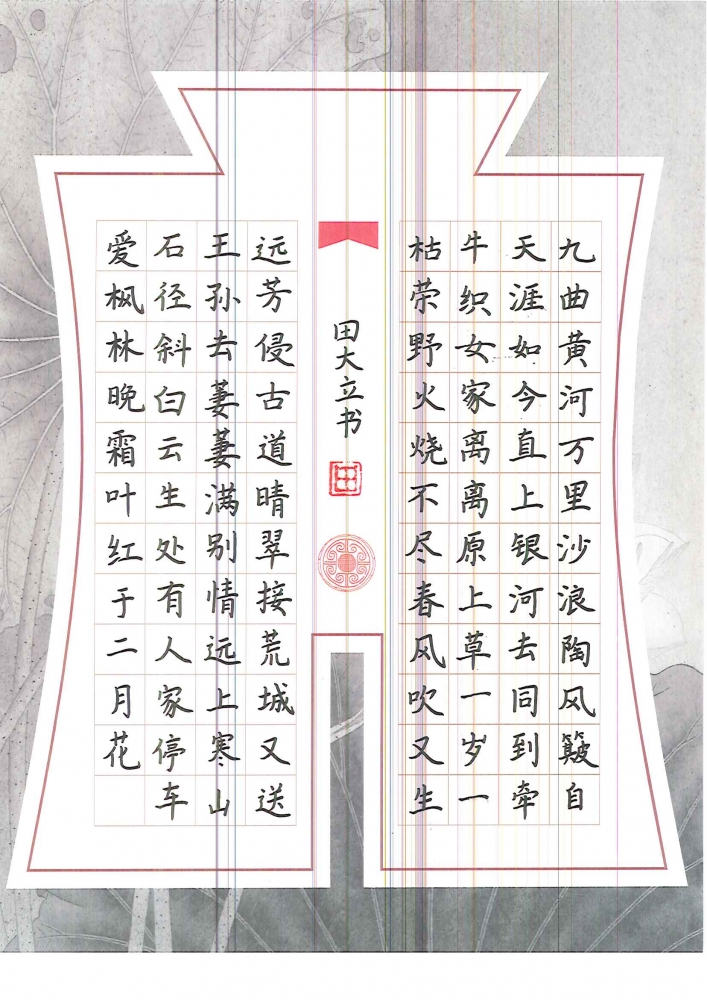 九曲黄河万里沙浪陶风簸自
天涯如今直上银河去同到牵
牛织女家离离原上草一岁一
枯荣野火烧不尽春风吹又生
远芳侵古道晴翠接荒城又送
王孙去萋萋满别情远上寒山
石径斜白云生处有人家停车
爱枫林晚霜叶红于二月花
田大立书